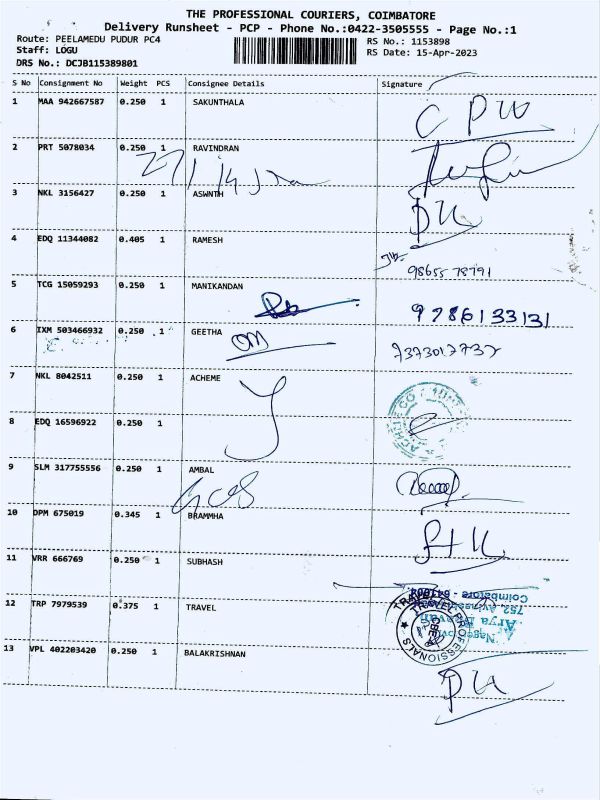 THE PROFESSIONAL COURIERS, COIMBATORE
Delivery Runsheet - PCP - Phone No.:0422-3505555 - Page No.:1
Route: PEELAMEDU PUDUR PC4
RS No.: 1153898
Staff: LOGU
RS Date: 15-Apr-2023
DRS No.: DCJB115389801
S No Consignment No Weight PCS Consignee Details Signature
1 MAA 942667587 0.250 1 SAKUNTHALA
2 PRT 5078034 0.250 1 RAVINDRAN
3 NKL 3156427 0.250 1 ASWNTH
4 EDQ 11344082 0.405 1 RAMESH
98655 78791
5 TCG 15059293 0.250 1 MANIKANDAN
9786133131
6 IXM 503466932 0.250 1 GEETHA
7373017732
7 NKL 8042511 0.250 1 ACHEME
8 EDQ 16596922 0.250 1
9 SLM 317755556 0.250 1 AMBAL
10 DPM 675019 0.345 1 BRAMMHA
11 VRR 666769 0.250 1 SUBHASH
12 TRP 7979539 0.375 1 TRAVEL
TRAVEL PROFESSIONALS
13 VPL 402203420 0.250 1 BALAKRISHNAN